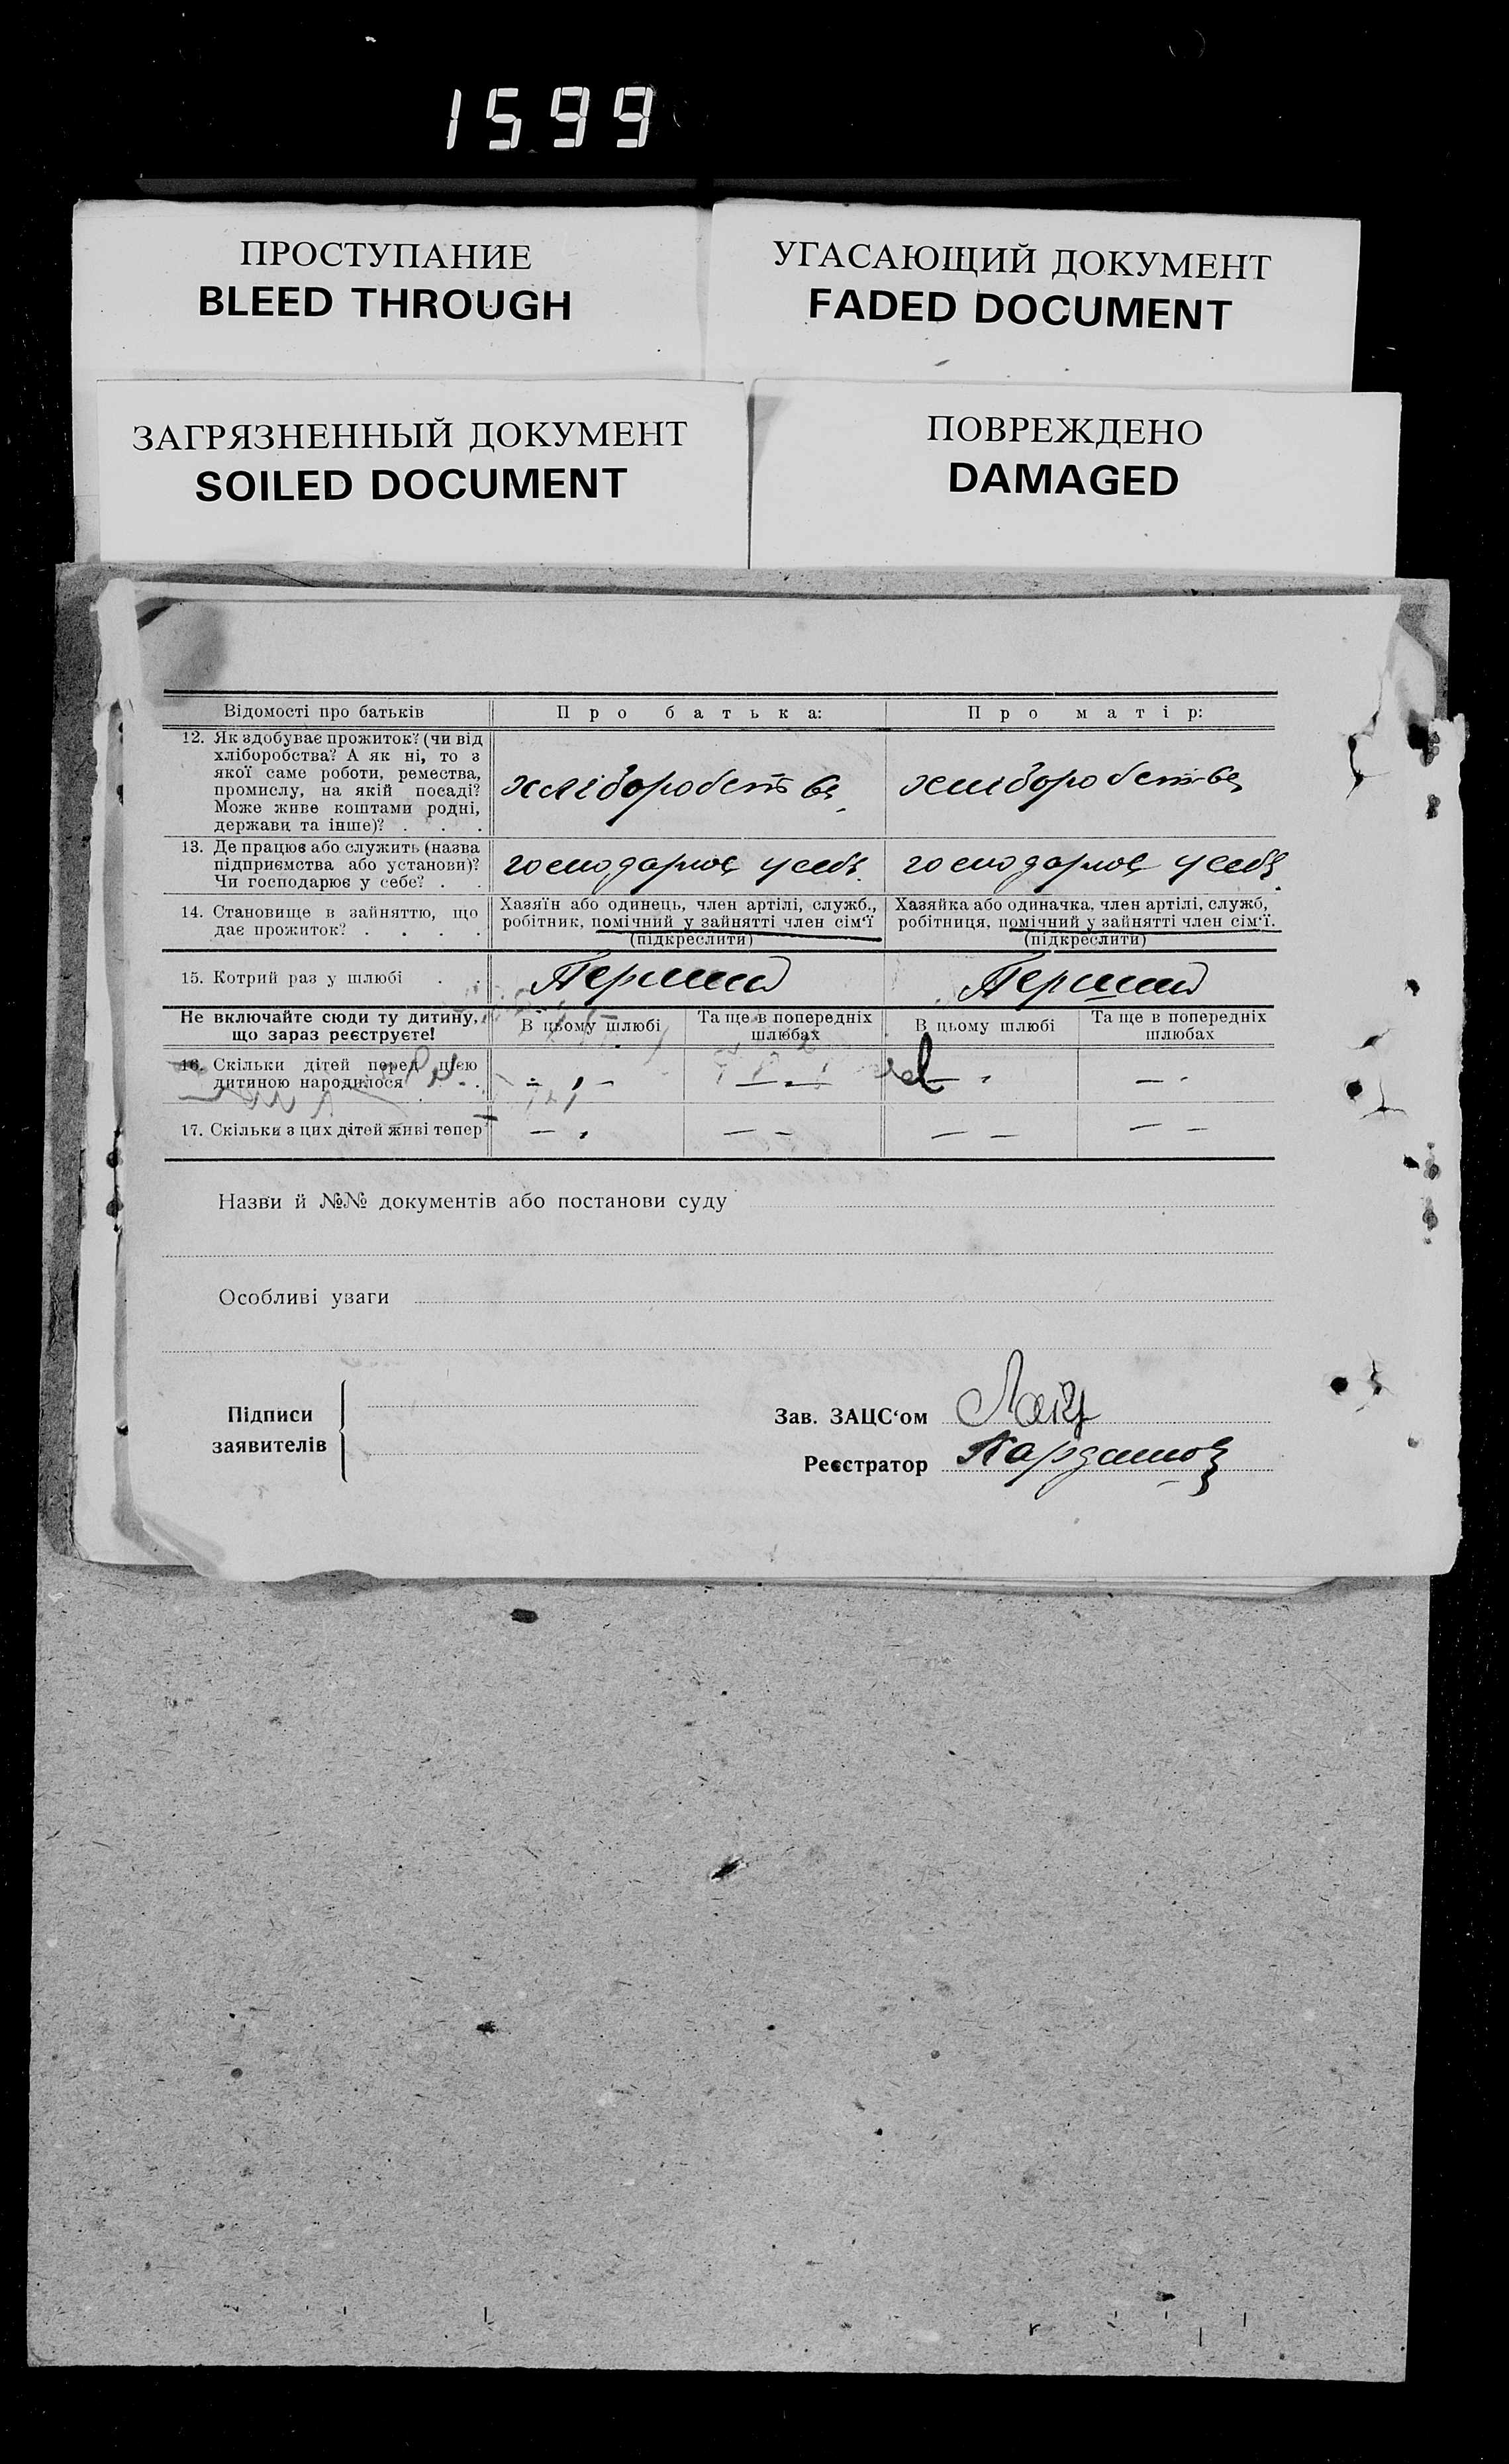 1599
ПРОСТУПАНИЕ
BLEED THROUGH
УГАСАЮЩИЙ ДОКУМЕНТ
FADED DOCUMENT
ЗАГРЯЗНЕННЫЙ ДОКУМЕНТ
SOILED DOCUMENT
ПОВРЕЖДЕНО
DAMAGED
Відомості про батьків
Про батька:
Про матір:
12. Як здобуває прожиток? (чи від
хліборобства? А як ні, то з
якої саме роботи, ремества,
промислу, на якій посаді?
Може живе коштами родні,
держави та інше)? . . .
хліборобство
хліборобство
13. Де працює або служить (назва
підприємства або установи)?
Чи господарює у себе? . .
господарює у себе
господарює у себе
14. Становище в зайняттю, що
дає прожиток? . . . .
Хазяїн або одинець, член артілі, служб.,
робітник, помічний у зайнятті член сім'ї
(підкреслити)
Хазяйка або одиначка, член артілі, служб,
робітниця, помічний у зайнятті член сім'ї.
(підкреслити)
15. Котрий раз у шлюбі . .
Перший
Перший
Не включайте сюди ту дитину,
що зараз реєструєте!
В цьому шлюбі
Та ще в попередніх
шлюбах
В цьому шлюбі
Та ще в попередніх
шлюбах
16. Скільки дітей перед цією
дитиною народилося . .
17. Скільки з цих дітей живі тепер
Назви й №№ документів або постанови суду
Особливі уваги
Підписи
заявителів
Зав. ЗАЦС'ом
Реєстратор